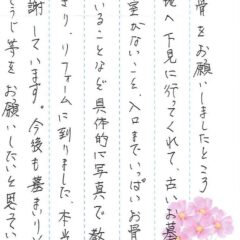 骨をお願いしましたところ
地へ下見に行ってくれて、古いお墓
室がないこと、入口までいっぱいお骨
いることなど具体的に写真で教
きり、リフォームに到りました。本当
謝しています。今後も墓まいり
そうじ等をお願いしたいと思ってい